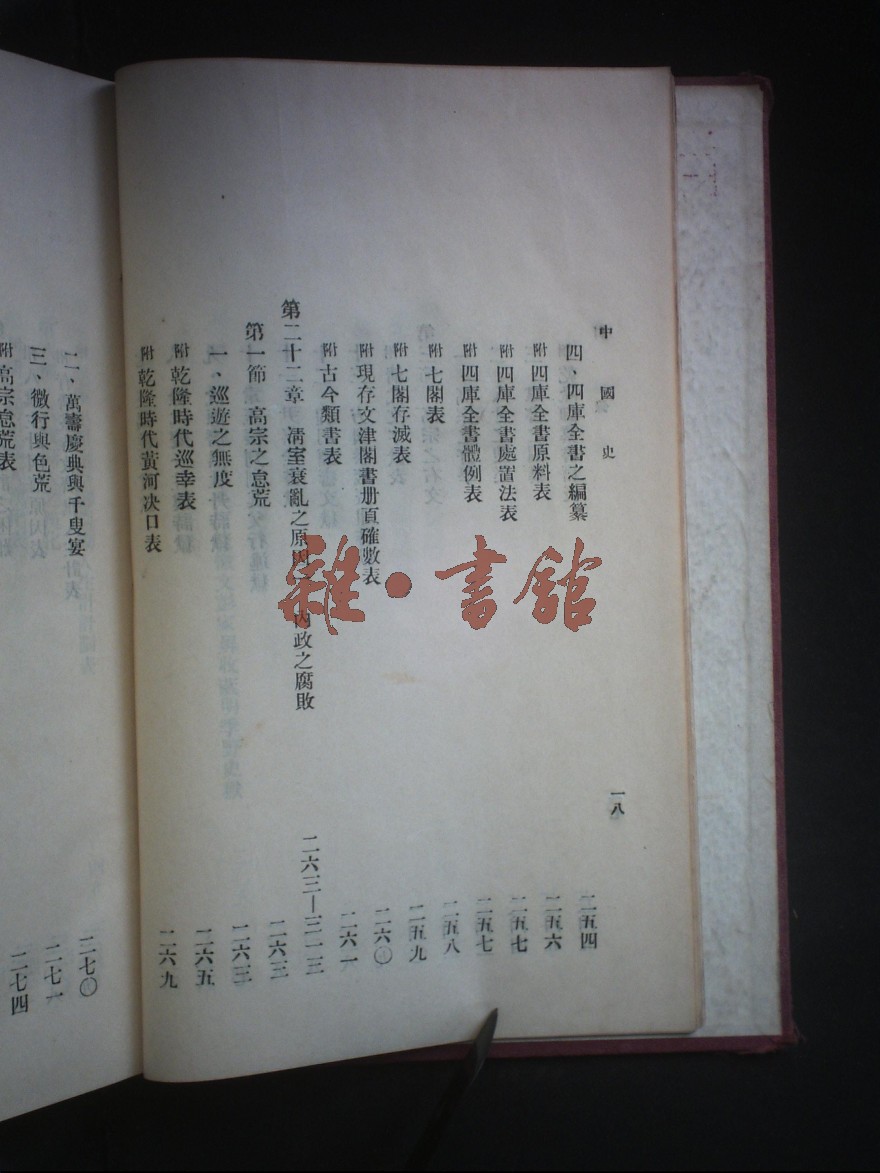 中國史
一八
四、四庫全書之編纂 二五四
附 四庫全書原料表 二五六
附 四庫全書處置法表 二五七
附 四庫全書體例表 二五七
附 七閣表 二五八
附 七閣存滅表 二五九
附 現存文津閣書册頁確數表 二六〇
附 古今類書表 二六一
第二十二章 清室衰亂之原因 內政之腐敗 二六三—三一三
第一節 高宗之怠荒 二六三
一、巡遊之無度 二六三
附 乾隆時代巡幸表 二六五
附 乾隆時代黃河決口表 二六九
二、萬壽慶典與千叟宴 二七〇
三、微行與色荒 二七一
附 高宗怠荒表 二七四
雜·書館